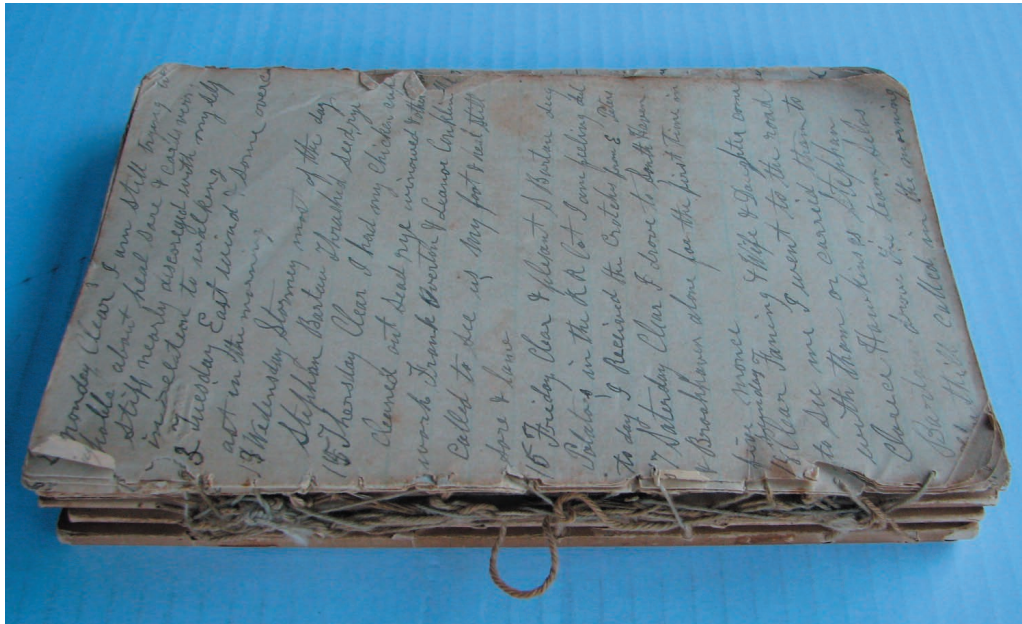 monday Clear I am still trying to
hobble about heal Sore & Cads very
stiff nearly discureged with my self
in relation to walking
13 Tuesday East wind Some over
ast in the morning
13 Wedensday Stormey most of the day
Stephen Bartau Thrashed seed rye
15 Thorsday Clear I had my Chicken
Cleaned out Sead rye vinowed
work Frank Overton & Leanor Conklin
Called to See us My foot & heal Still
Sore & lame
16 Friday Clear & pleasant S Bartau dug
Potatoes in the Lot I am feeling
to day I Received the Crates from E
17 Saturday Clear I drove to
& Brookhaven alone for the first time in
monce
Sunday
18 Clear Faning & Wife & Daughter come
to See me I went to the road
with them or carreid them to
Clarece Hawkins as Stephan
drove in
called in the morning